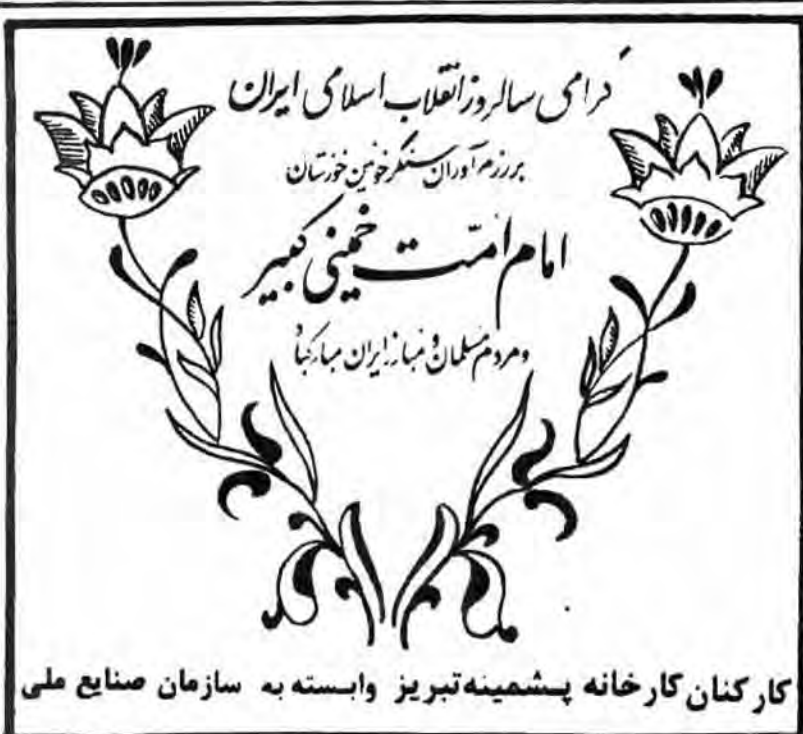 گرامی سالروز انقلاب اسلامی ایران
بر رزم آوران سنگر خونین خوزستان
امام امّت خمینی کبیر
و مردم مسلمان و مبارز ایران مبارکباد
کارکنان کارخانه پشمینه تبریز وابسته به سازمان صنایع ملی